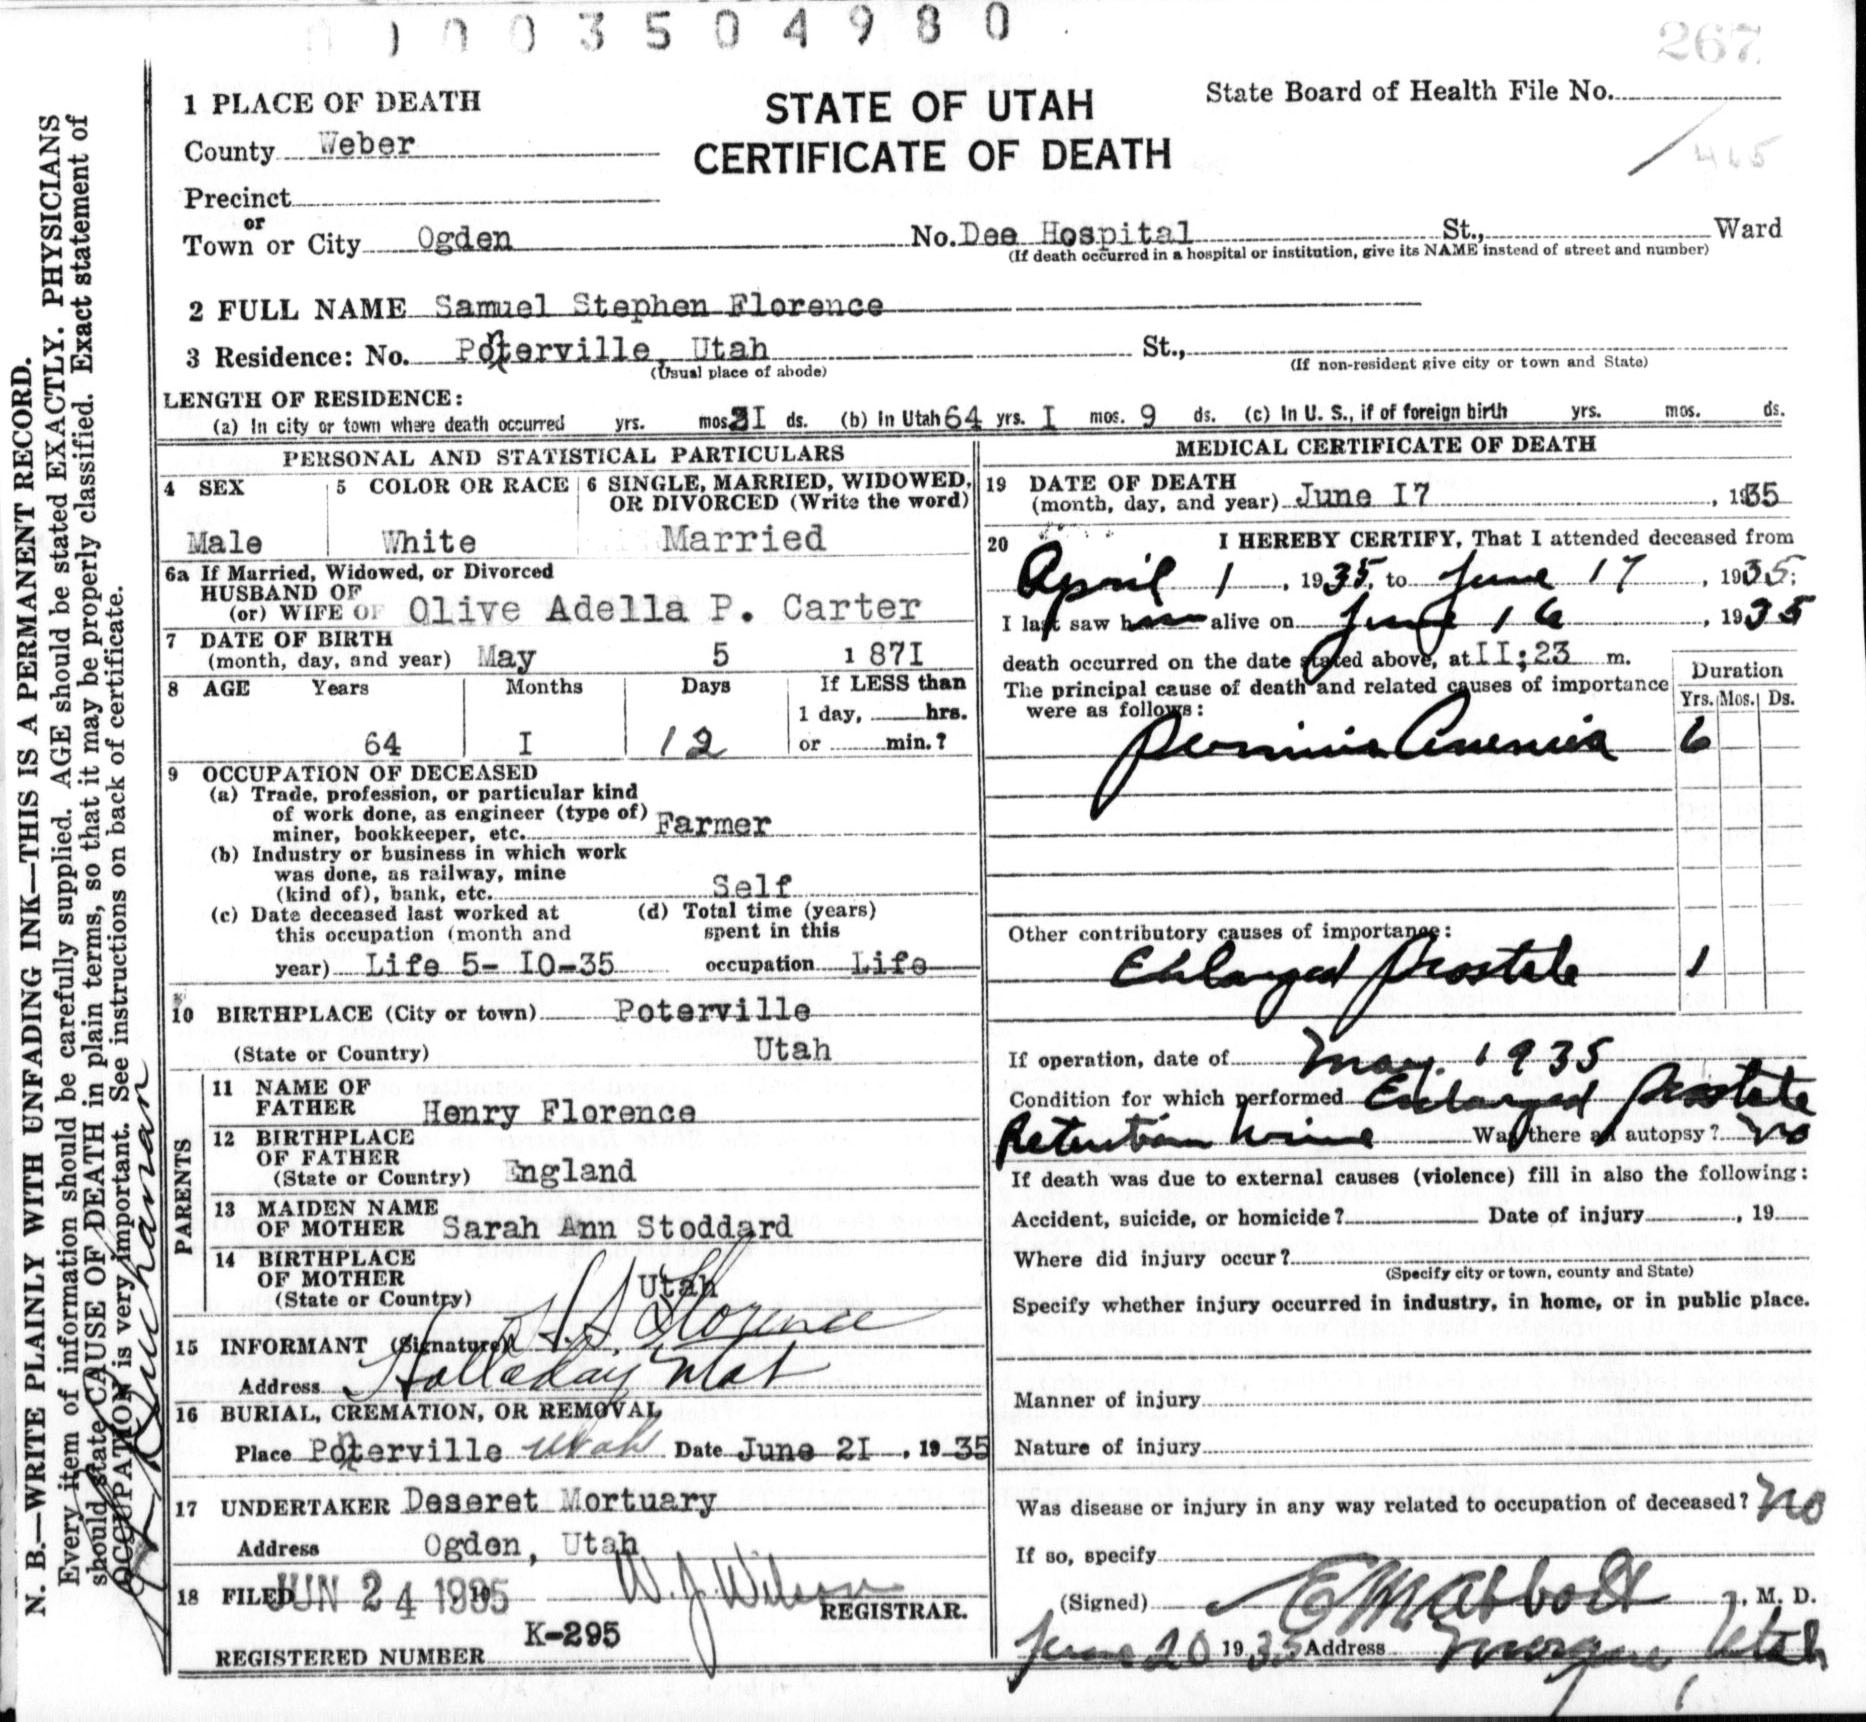 0 1 0 0 3 5 0 4 9 8 0
267
1 PLACE OF DEATH
STATE OF UTAH
CERTIFICATE OF DEATH
State Board of Health File No.
County Weber
465
Precinct
or
Town or City Ogden No. Dee Hospital St., Ward
(If death occurred in a hospital or institution, give its NAME instead of street and number)
2 FULL NAME Samuel Stephen Florence
3 Residence: No. Poterville, Utah St.,
(Usual place of abode) (If non-resident give city or town and State)
LENGTH OF RESIDENCE:
(a) In city or town where death occurred yrs. mos. 31 ds. (b) In Utah 64 yrs. I mos. 9 ds. (c) In U. S., if of foreign birth yrs. mos. ds.
PERSONAL AND STATISTICAL PARTICULARS
4 SEX 5 COLOR OR RACE 6 SINGLE, MARRIED, WIDOWED,
OR DIVORCED (Write the word)
Male White Married
6a If Married, Widowed, or Divorced
HUSBAND OF
(or) WIFE OF Olive Adella P. Carter
7 DATE OF BIRTH
(month, day, and year) May 5 187I
8 AGE Years Months Days If LESS than
1 day, hrs.
64 I 12 or min.?
9 OCCUPATION OF DECEASED
(a) Trade, profession, or particular kind
of work done, as engineer (type of)
miner, bookkeeper, etc. Farmer
(b) Industry or business in which work
was done, as railway, mine
(kind of), bank, etc. Self
(c) Date deceased last worked at (d) Total time (years)
this occupation (month and spent in this
year) Life 5- I0-35 occupation Life
10 BIRTHPLACE (City or town) Poterville
(State or Country) Utah
PARENTS
11 NAME OF
FATHER Henry Florence
12 BIRTHPLACE
OF FATHER
(State or Country) England
13 MAIDEN NAME
OF MOTHER Sarah Ann Stoddard
14 BIRTHPLACE
OF MOTHER
(State or Country) Utah
15 INFORMANT (Signature) H. S. Florence
Address Holladay Utah
16 BURIAL, CREMATION, OR REMOVAL
Place Poterville Utah Date June 2I, 1935
17 UNDERTAKER Deseret Mortuary
Address Ogden, Utah
18 FILED JUN 24 1935 W. J. Wilson
REGISTRAR.
REGISTERED NUMBER K-295
MEDICAL CERTIFICATE OF DEATH
19 DATE OF DEATH
(month, day, and year) June I7, 1935
20 I HEREBY CERTIFY, That I attended deceased from
April 1, 1935, to June 17, 1935;
I last saw him alive on June 16, 1935
death occurred on the date stated above, at II;23 m.
The principal cause of death and related causes of importance
were as follows:
Duration
Yrs. Mos. Ds.
Pernicious Anemia 6
Other contributory causes of importance:
Enlarged Prostate 1
If operation, date of May. 1935
Condition for which performed Enlarged Prostate
Retention Urine Was there an autopsy? No
If death was due to external causes (violence) fill in also the following:
Accident, suicide, or homicide? Date of injury, 19
Where did injury occur?
(Specify city or town, county and State)
Specify whether injury occurred in industry, in home, or in public place.
Manner of injury
Nature of injury
Was disease or injury in any way related to occupation of deceased? No
If so, specify
(Signed) E M Abbott, M. D.
June 20 1935 Address Morgan, Utah
N. B.—WRITE PLAINLY WITH UNFADING INK—THIS IS A PERMANENT RECORD.
Every item of information should be carefully supplied. AGE should be stated EXACTLY. PHYSICIANS
should state CAUSE OF DEATH in plain terms, so that it may be properly classified. Exact statement of
OCCUPATION is very important. See instructions on back of certificate.
Buchanan